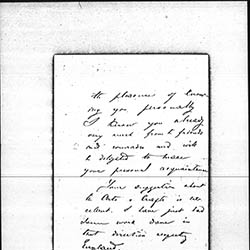 the pleasure of know-
ing you personally
I know you already
very much from friends
and comrades and will
be delighted to make
your personal acquaintance
Your suggestion about
the Arts & Crafts is exc-
ellent. I have just had
some work done in
that direction respecty
England.